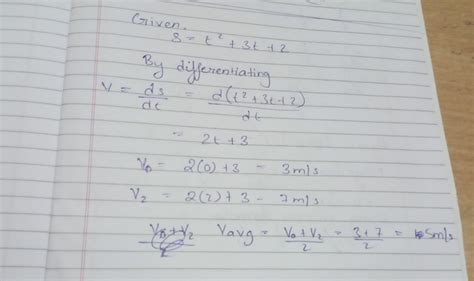 Given.
S = t² + 3t + 2
By differentiating
V = ds/dt = d(t² + 3t + 2)/dt
= 2t + 3
V₀ = 2(0) + 3 = 3m/s
V₂ = 2(2) + 3 = 7m/s
Vavg = V₀ + V₂/2 = 3 + 7/2 = 5m/s